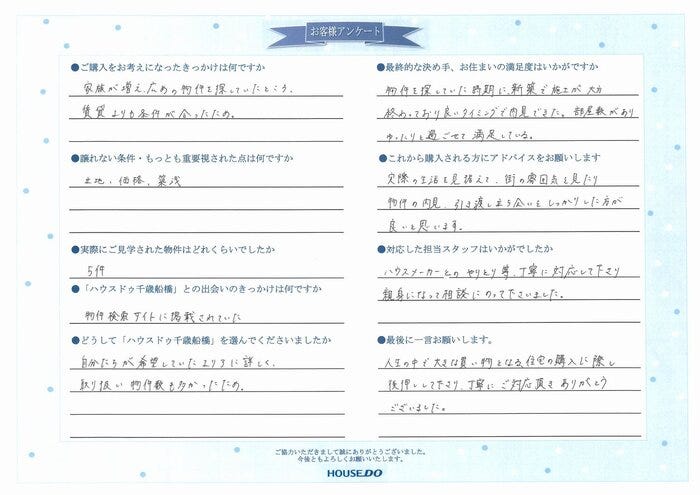 お客様アンケート
●ご購入をお考えになったきっかけは何ですか
家族が増え、広めの物件を探していたところ、
賃貸よりも条件が合ったため。
●譲れない条件・もっとも重要視された点は何ですか
土地・価格、築浅
●実際にご見学された物件はどれくらいでしたか
5件
●「ハウスドゥ千歳船橋」との出会いのきっかけは何ですか
物件検索サイトに掲載されていた
●どうして「ハウスドゥ千歳船橋」を選んでくださいましたか
自分たちが希望していたエリアに詳しく、
取り扱い物件数も多かったため。
●最終的な決め手、お住まいの満足度はいかがですか
物件を探していた時期に、新築で施工が大方
終わっており良いタイミングで内見できた。部屋数があり
ゆったりと過ごせて満足している。
●これから購入される方にアドバイスをお願いします
実際の生活を見据えて、街の雰囲気を見たり
物件の内見、引き渡し立ち会いをしっかりした方が
良いと思います。
●対応した担当スタッフはいかがでしたか
ハウスメーカーとのやりとり等、丁寧に対応して下さり
親身になって相談にのって下さいました。
●最後に一言お願いします。
人生の中で大きな買い物となる住宅の購入に際し
後押しして下さり、丁寧にご対応頂きありがとう
ございました。
ご協力いただきまして誠にありがとうございました。
今後ともよろしくお願いいたします。
HOUSEDO